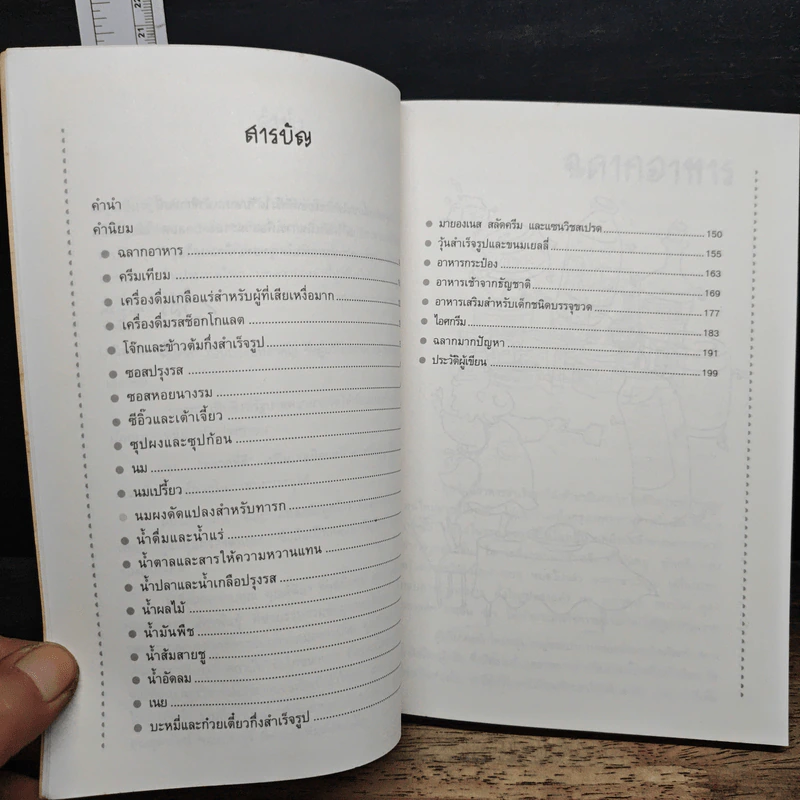 22
21
สารบัญ
คำนำ
คำนิยม
ฉลากอาหาร
ครีมเทียม
เครื่องดื่มเกลือแร่สำหรับผู้ที่เสียเหงื่อมาก
เครื่องดื่มรสช็อกโกแลต
โจ๊กและข้าวต้มกึ่งสำเร็จรูป
ซอสปรุงรส
ซอสหอยนางรม
ซีอิ๊วและเต้าเจี้ยว
ซุปผงและซุปก้อน
นม
นมเปรี้ยว
นมผงดัดแปลงสำหรับทารก
น้ำดื่มและน้ำแร่
น้ำตาลและสารให้ความหวานแทน
น้ำปลาและน้ำเกลือปรุงรส
น้ำผลไม้
น้ำมันพืช
น้ำส้มสายชู
น้ำอัดลม
เนย
บะหมี่และก๋วยเตี๋ยวกึ่งสำเร็จรูป
มายองเนส สลัดครีม และแซนวิชสเปรด 150
วุ้นสำเร็จรูปและขนมเยลลี่ 155
อาหารกระป๋อง 163
อาหารเช้าจากธัญชาติ 169
อาหารเสริมสำหรับเด็กชนิดบรรจุขวด 177
ไอศกรีม 183
ฉลากมากปัญหา 191
ประวัติผู้เขียน 199